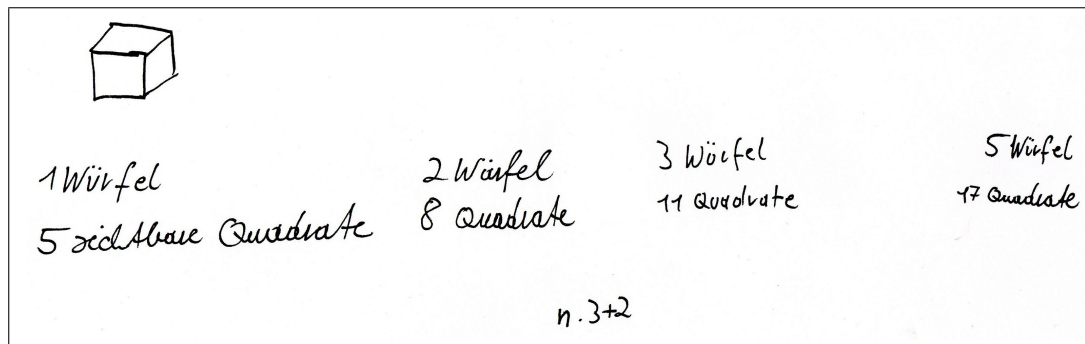 1 Würfel
5 sichtbare Quadrate
2 Würfel
8 Quadrate
3 Würfel
11 Quadrate
5 Würfel
17 Quadrate
n·3+2